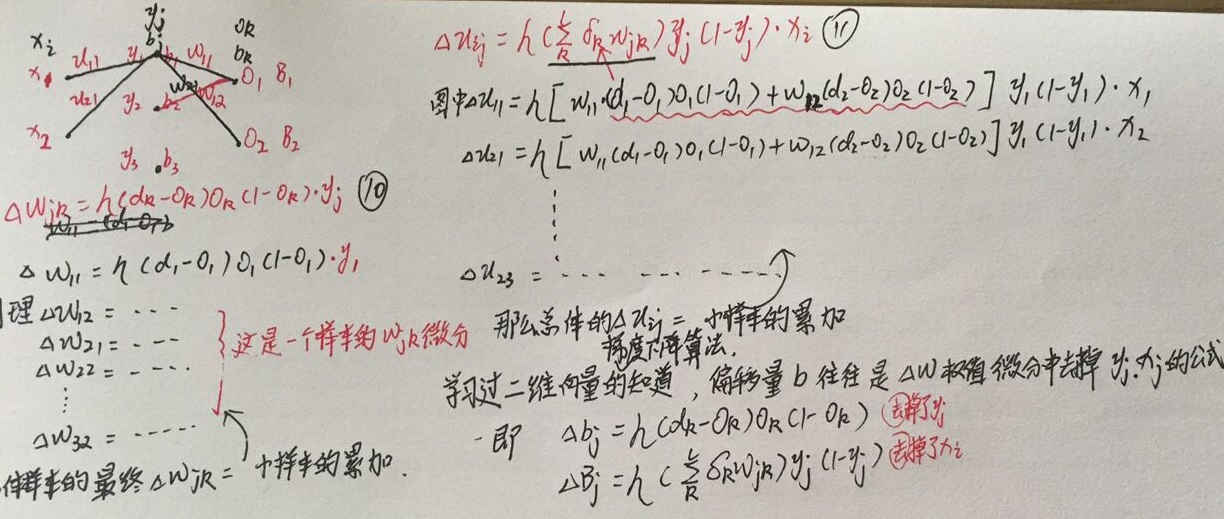 y_j
b_j
O_R
b_R
x_i
x_1 u_11 y_1 b_1 w_11 O_1 B_1
u_21 y_2 b_2 w_21 w_12
x_2 O_2 B_2
y_3 b_3
ΔW_jR = η(d_R-O_R)O_R(1-O_R)·y_j ⑩
Δw_11 = η(d_1-O_1)O_1(1-O_1)·y_1
理 Δw_12 = ····
Δw_21 = ····
Δw_22 = ·····
Δw_32 = ·····
这是一个样本的 w_jR 微分
样本的最终 Δw_jR = 个样本的累加.
Δu_ij = η(Σ_R^L δ_R w_jR) y_j(1-y_j)·x_i ⑪
图中Δu_11 = η[w_11·(d_1-O_1)O_1(1-O_1)+w_12(d_2-O_2)O_2(1-O_2)] y_1(1-y_1)·x_1
Δu_21 = η[w_11(d_1-O_1)O_1(1-O_1)+w_12(d_2-O_2)O_2(1-O_2)] y_1(1-y_1)·x_2
Δu_23 = ···· ···· ········
那么总体的Δu_ij = 个样本的累加
梯度下降算法.
学习过二维向量的知道，偏移量 b 往往是 Δw 权值微分中去掉 y_j.x_j的公式
即 Δb_j = η(d_R-O_R)O_R(1-O_R) 去掉了y_j
ΔB_j = η(Σ_R^L δ_R w_jR) y_j(1-y_j) 去掉了x_i